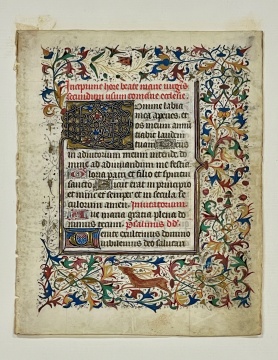 Incipiunt hore beate marie virgīs
secundum usum romane ecclesie.
Domine labia
mea aperies. et
os meum annū
ciabit laudem
tuam Deus
in adiutorium meum intende. do
mine ad adiuuandum me festin
Gloria patri et filio et spiritui
sancto Sicut erat in principio
et nunc et semper et in secula se
culorum amen. Inuitatorium
Aue maria gratia plena do
minus tecum. Psalmus dd
Uenite exultemus domino
iubilemus deo salutari